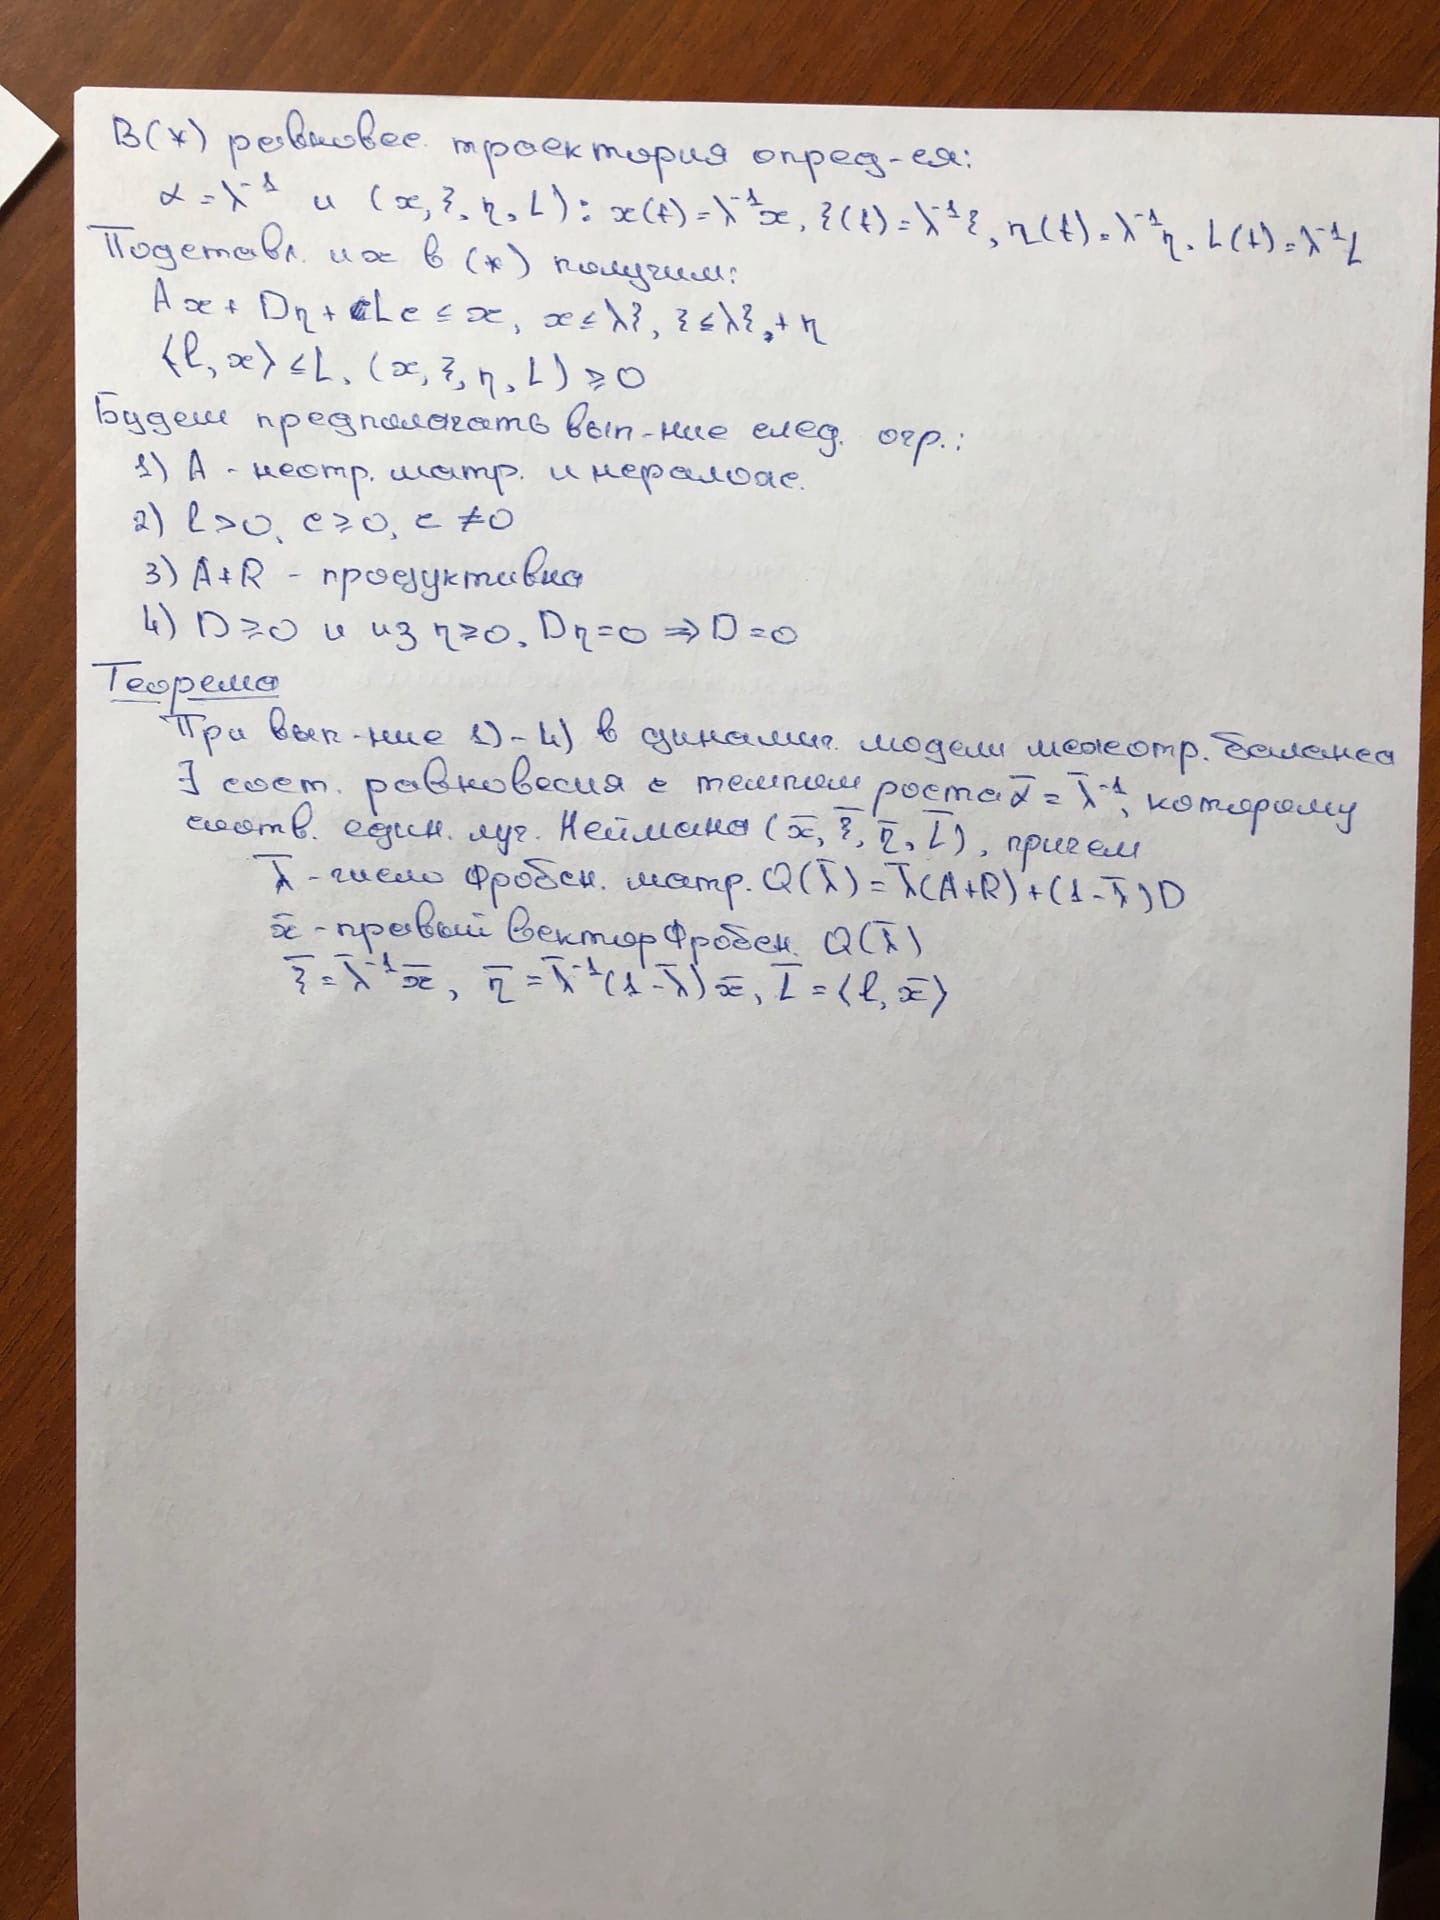 В(*) равновес. траектория опред-ся:
α = λ⁻¹ и (x, ξ, η, L): x(t) = λ⁻¹x, ξ(t) = λ⁻¹ξ, η(t) = λ⁻¹η, L(t) = λ⁻¹L
Подставл. их в (*) получим:
Ax + Dη + Lc ≤ x, x ≤ λξ, ξ ≤ λξ + η
⟨l, x⟩ ≤ L, (x, ξ, η, L) ≥ 0
Будем предполагать вып-ние след. огр.:
1) A - неотр. матр. и неразлож.
2) l > 0, c ≥ 0, c ≠ 0
3) A+R - продуктивна
4) D ≥ 0 и из η ≥ 0, Dη = 0 ⇒ D = 0
Теорема
При вып-ние 1) - 4) в динамич. модели межотр. баланса
∃ сост. равновесия с темпом роста ᾱ = λ̄⁻¹, которому
соотв. един. луч. Неймана (x̄, ξ̄, η̄, L̄), причем
λ̄ - число Фробен. матр. Q(λ̄) = λ̄(A+R) + (1-λ̄)D
x̄ - правый вектор Фробен. Q(λ̄)
ξ̄ = λ̄⁻¹x̄, η̄ = λ̄⁻¹(1-λ̄)x̄, L̄ = ⟨l, x̄⟩